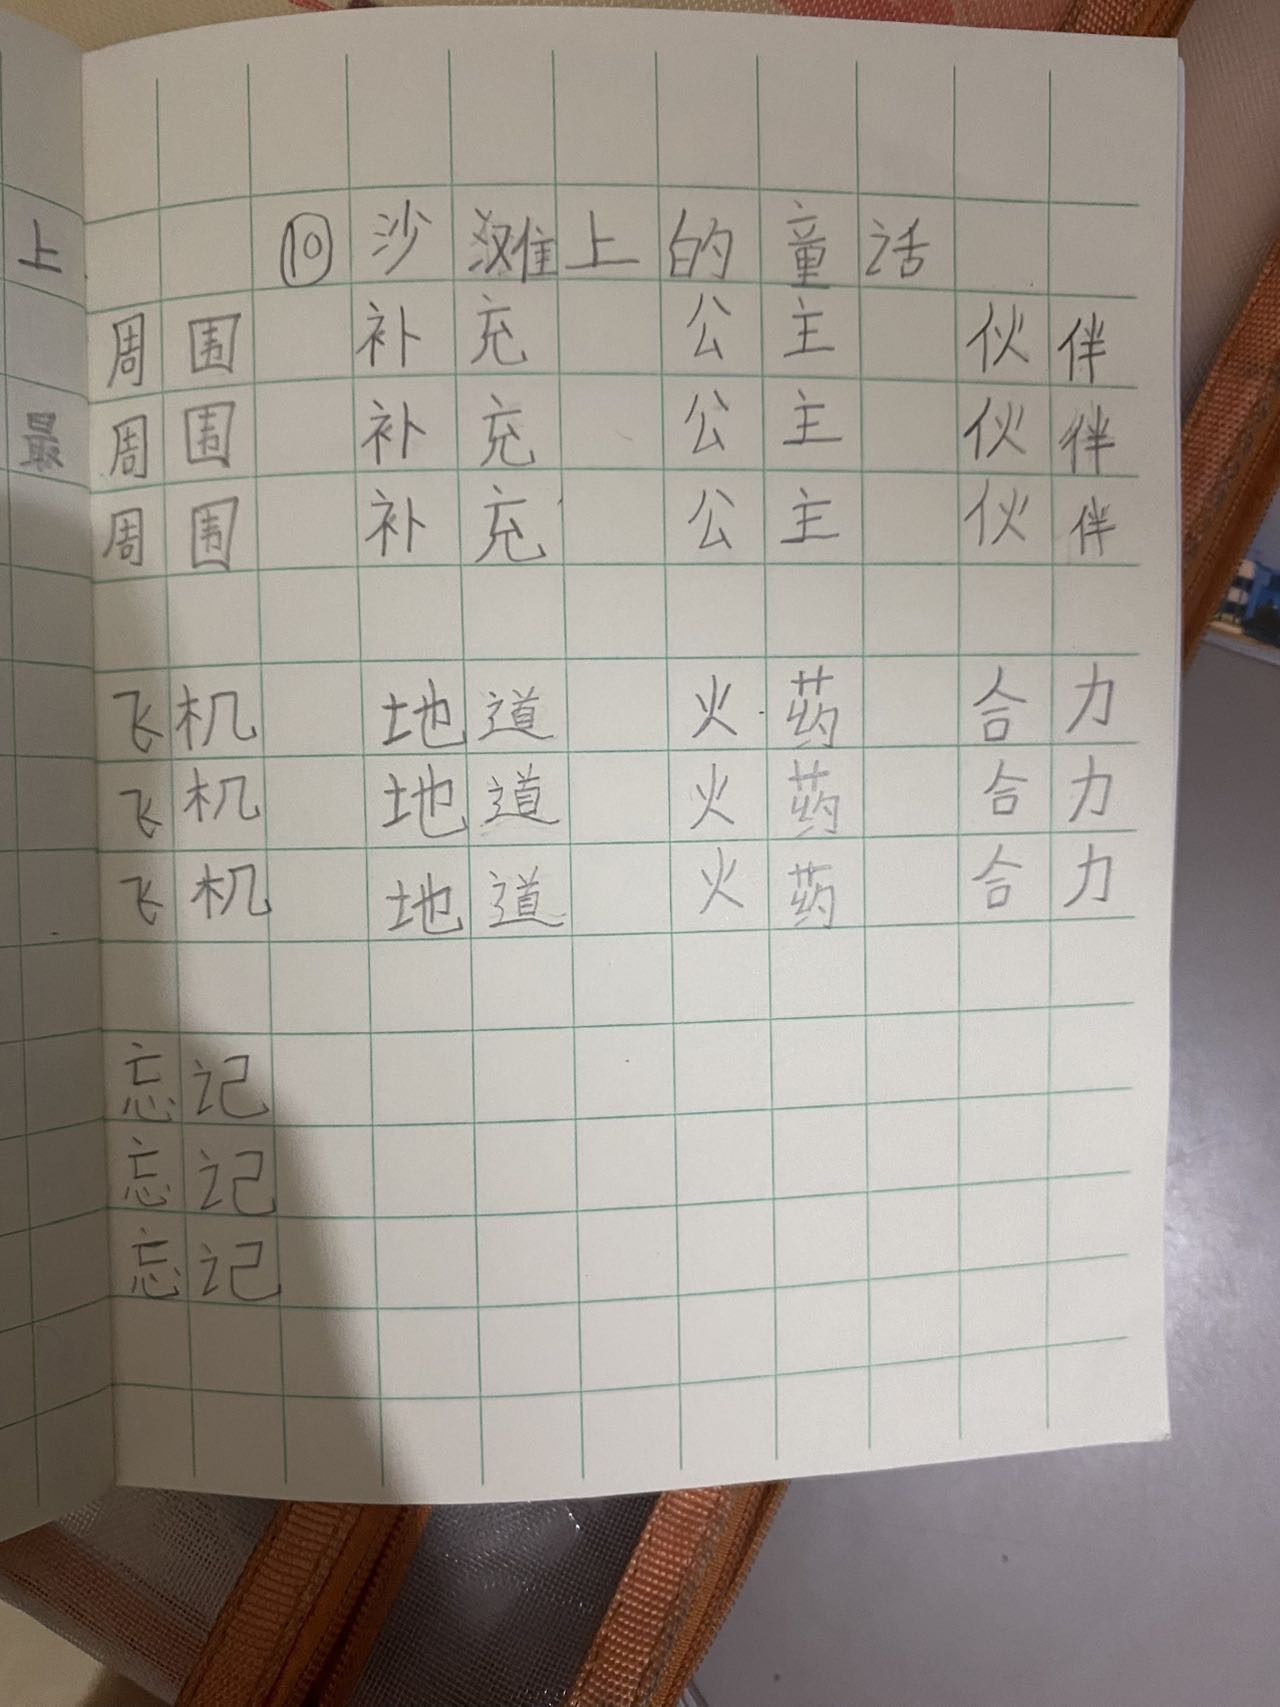 ⑩沙滩上的童话
周围 补充 公主 伙伴
周围 补充 公主 伙伴
周围 补充 公主 伙伴
飞机 地道 火药 合力
飞机 地道 火药 合力
飞机 地道 火药 合力
忘记
忘记
忘记
上
最